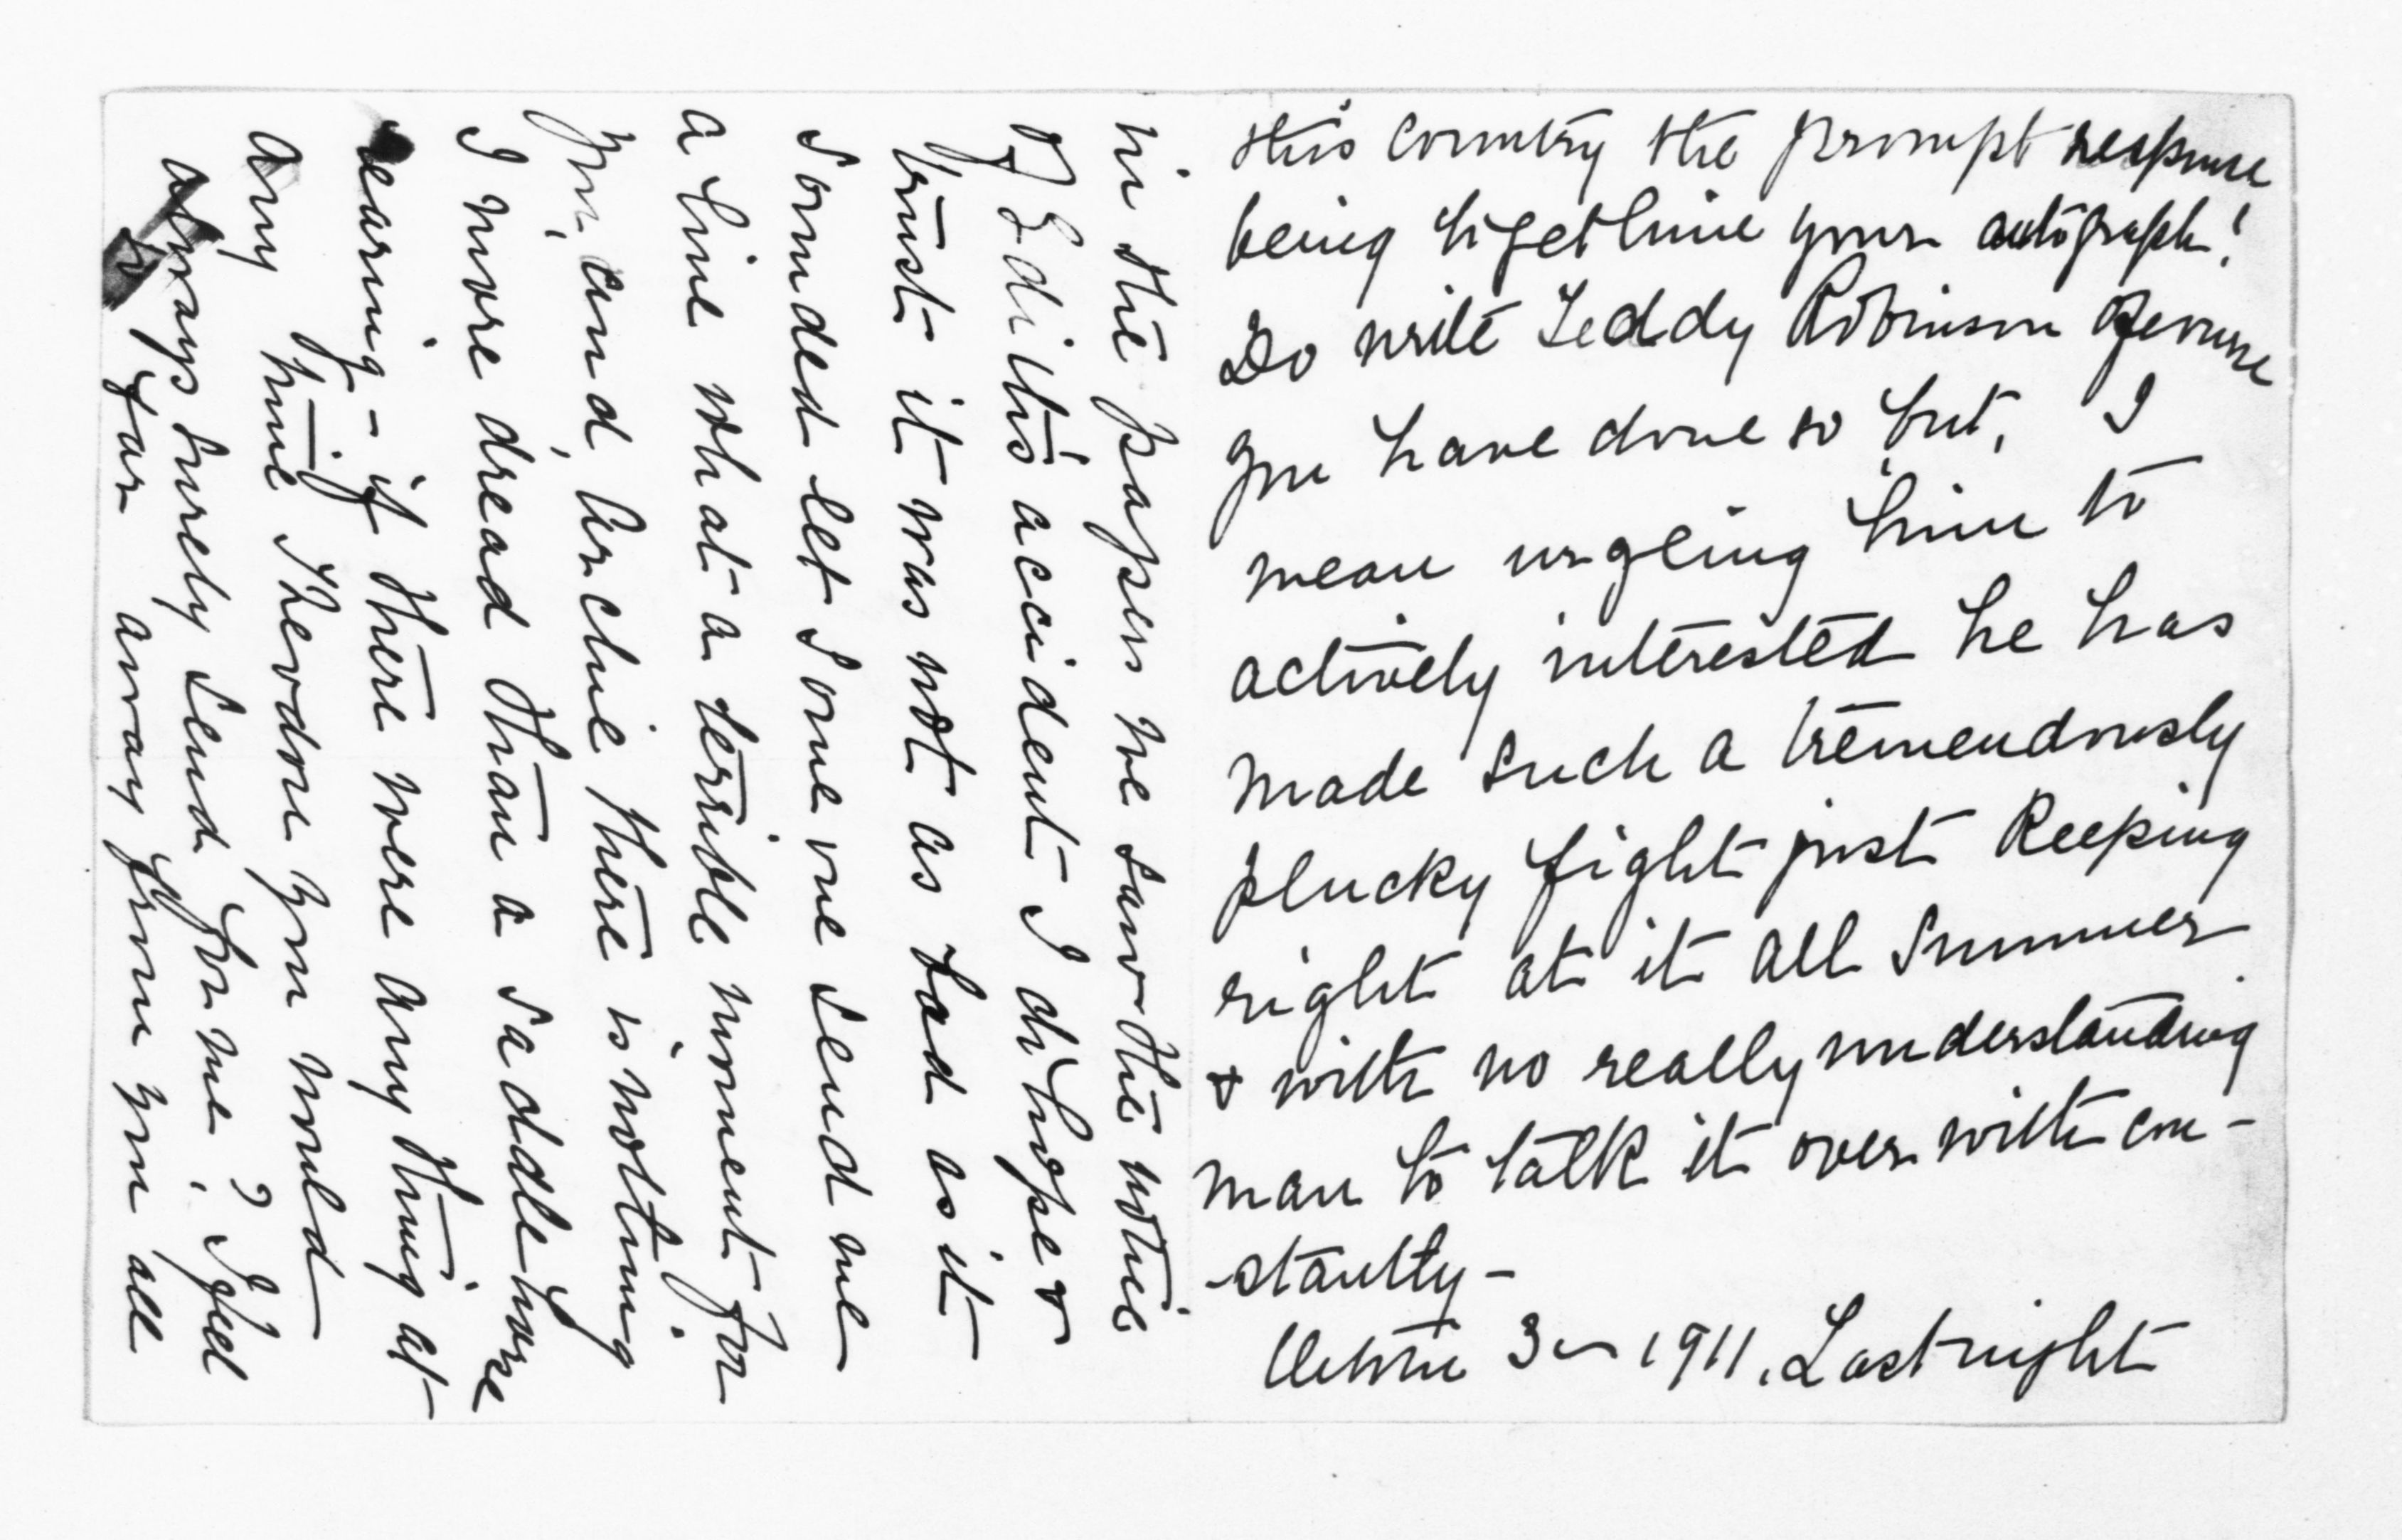 this country the prompt response
being to get him your autograph!
Do write Teddy Robinson of course
you have done so but, I
mean urgeing him to
actively interested he has
made such a tremendously
plucky fight just keeping
right at it all Summer
& with no really understanding
man to talk it over with con-
-stantly-
October 3– 1911. Last night
in the papers we saw the notice
of Edith's accident I do hope &
trust it was not as bad as it
sounded let some one send me
a line what a terrible moment for
you, and Archie there is nothing
I more dread than a saddle horse
rearing - if there were any thing at
any time Theodore you would
always surely send for me? I feel
so far away from you all